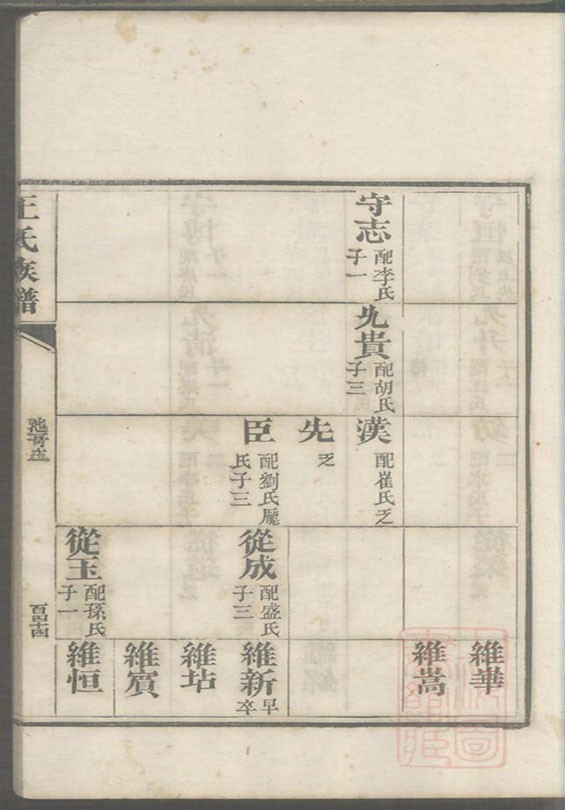 守志
配李氏
子一
允貴
配胡氏
子三
漢
配崔氏乏
先
乏
臣
配劉氏龎
氏子三
從成
配盛氏
子三
從玉
配孫氏
子一
維華
維嵩
維新
早
卒
維坫
維賓
維恒
王氏族譜
百四十四